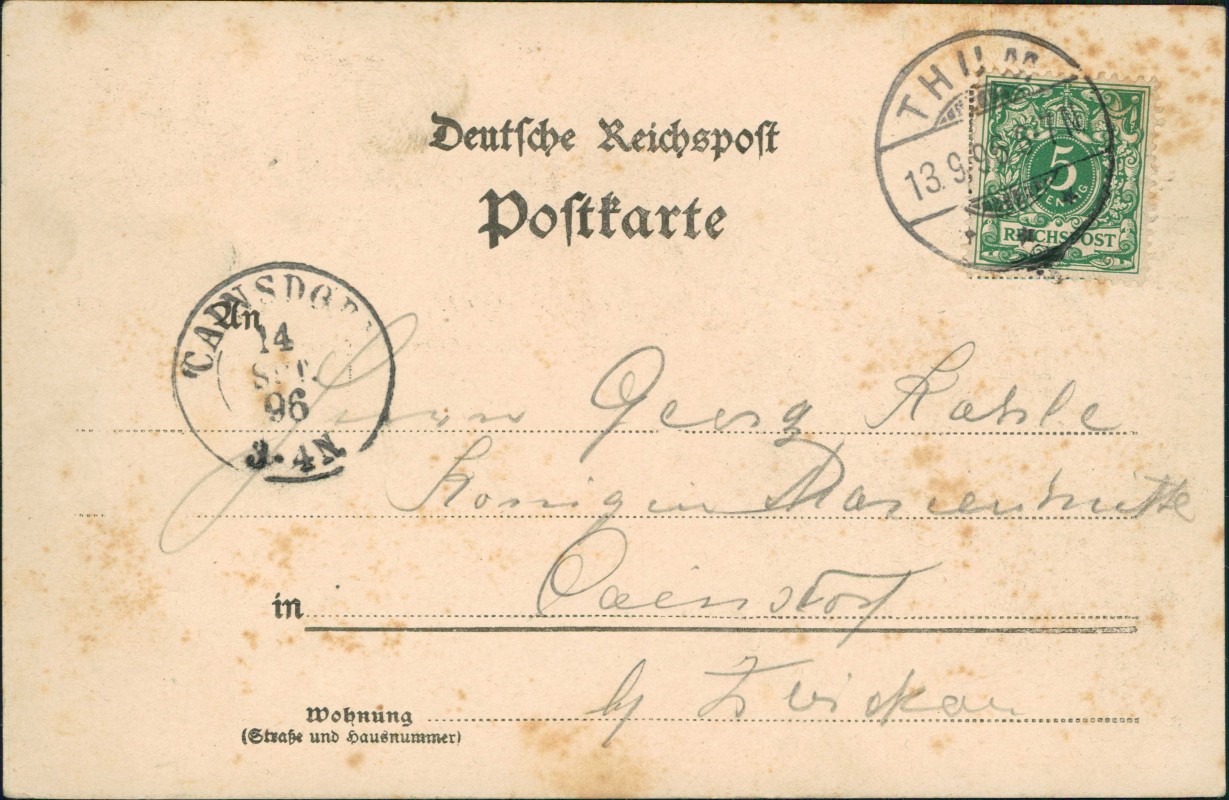 Deutsche Reichspost
Postkarte
THUM
13.9.96 6-7N
5
PFENNIG
REICHSPOST
CAINSDORF
14
SEP.
96
3-4N
An
Herrn Georg Kahle
Königin Marienhütte
in Cainsdorf
by Zwickau
Wohnung
(Straße und Hausnummer)